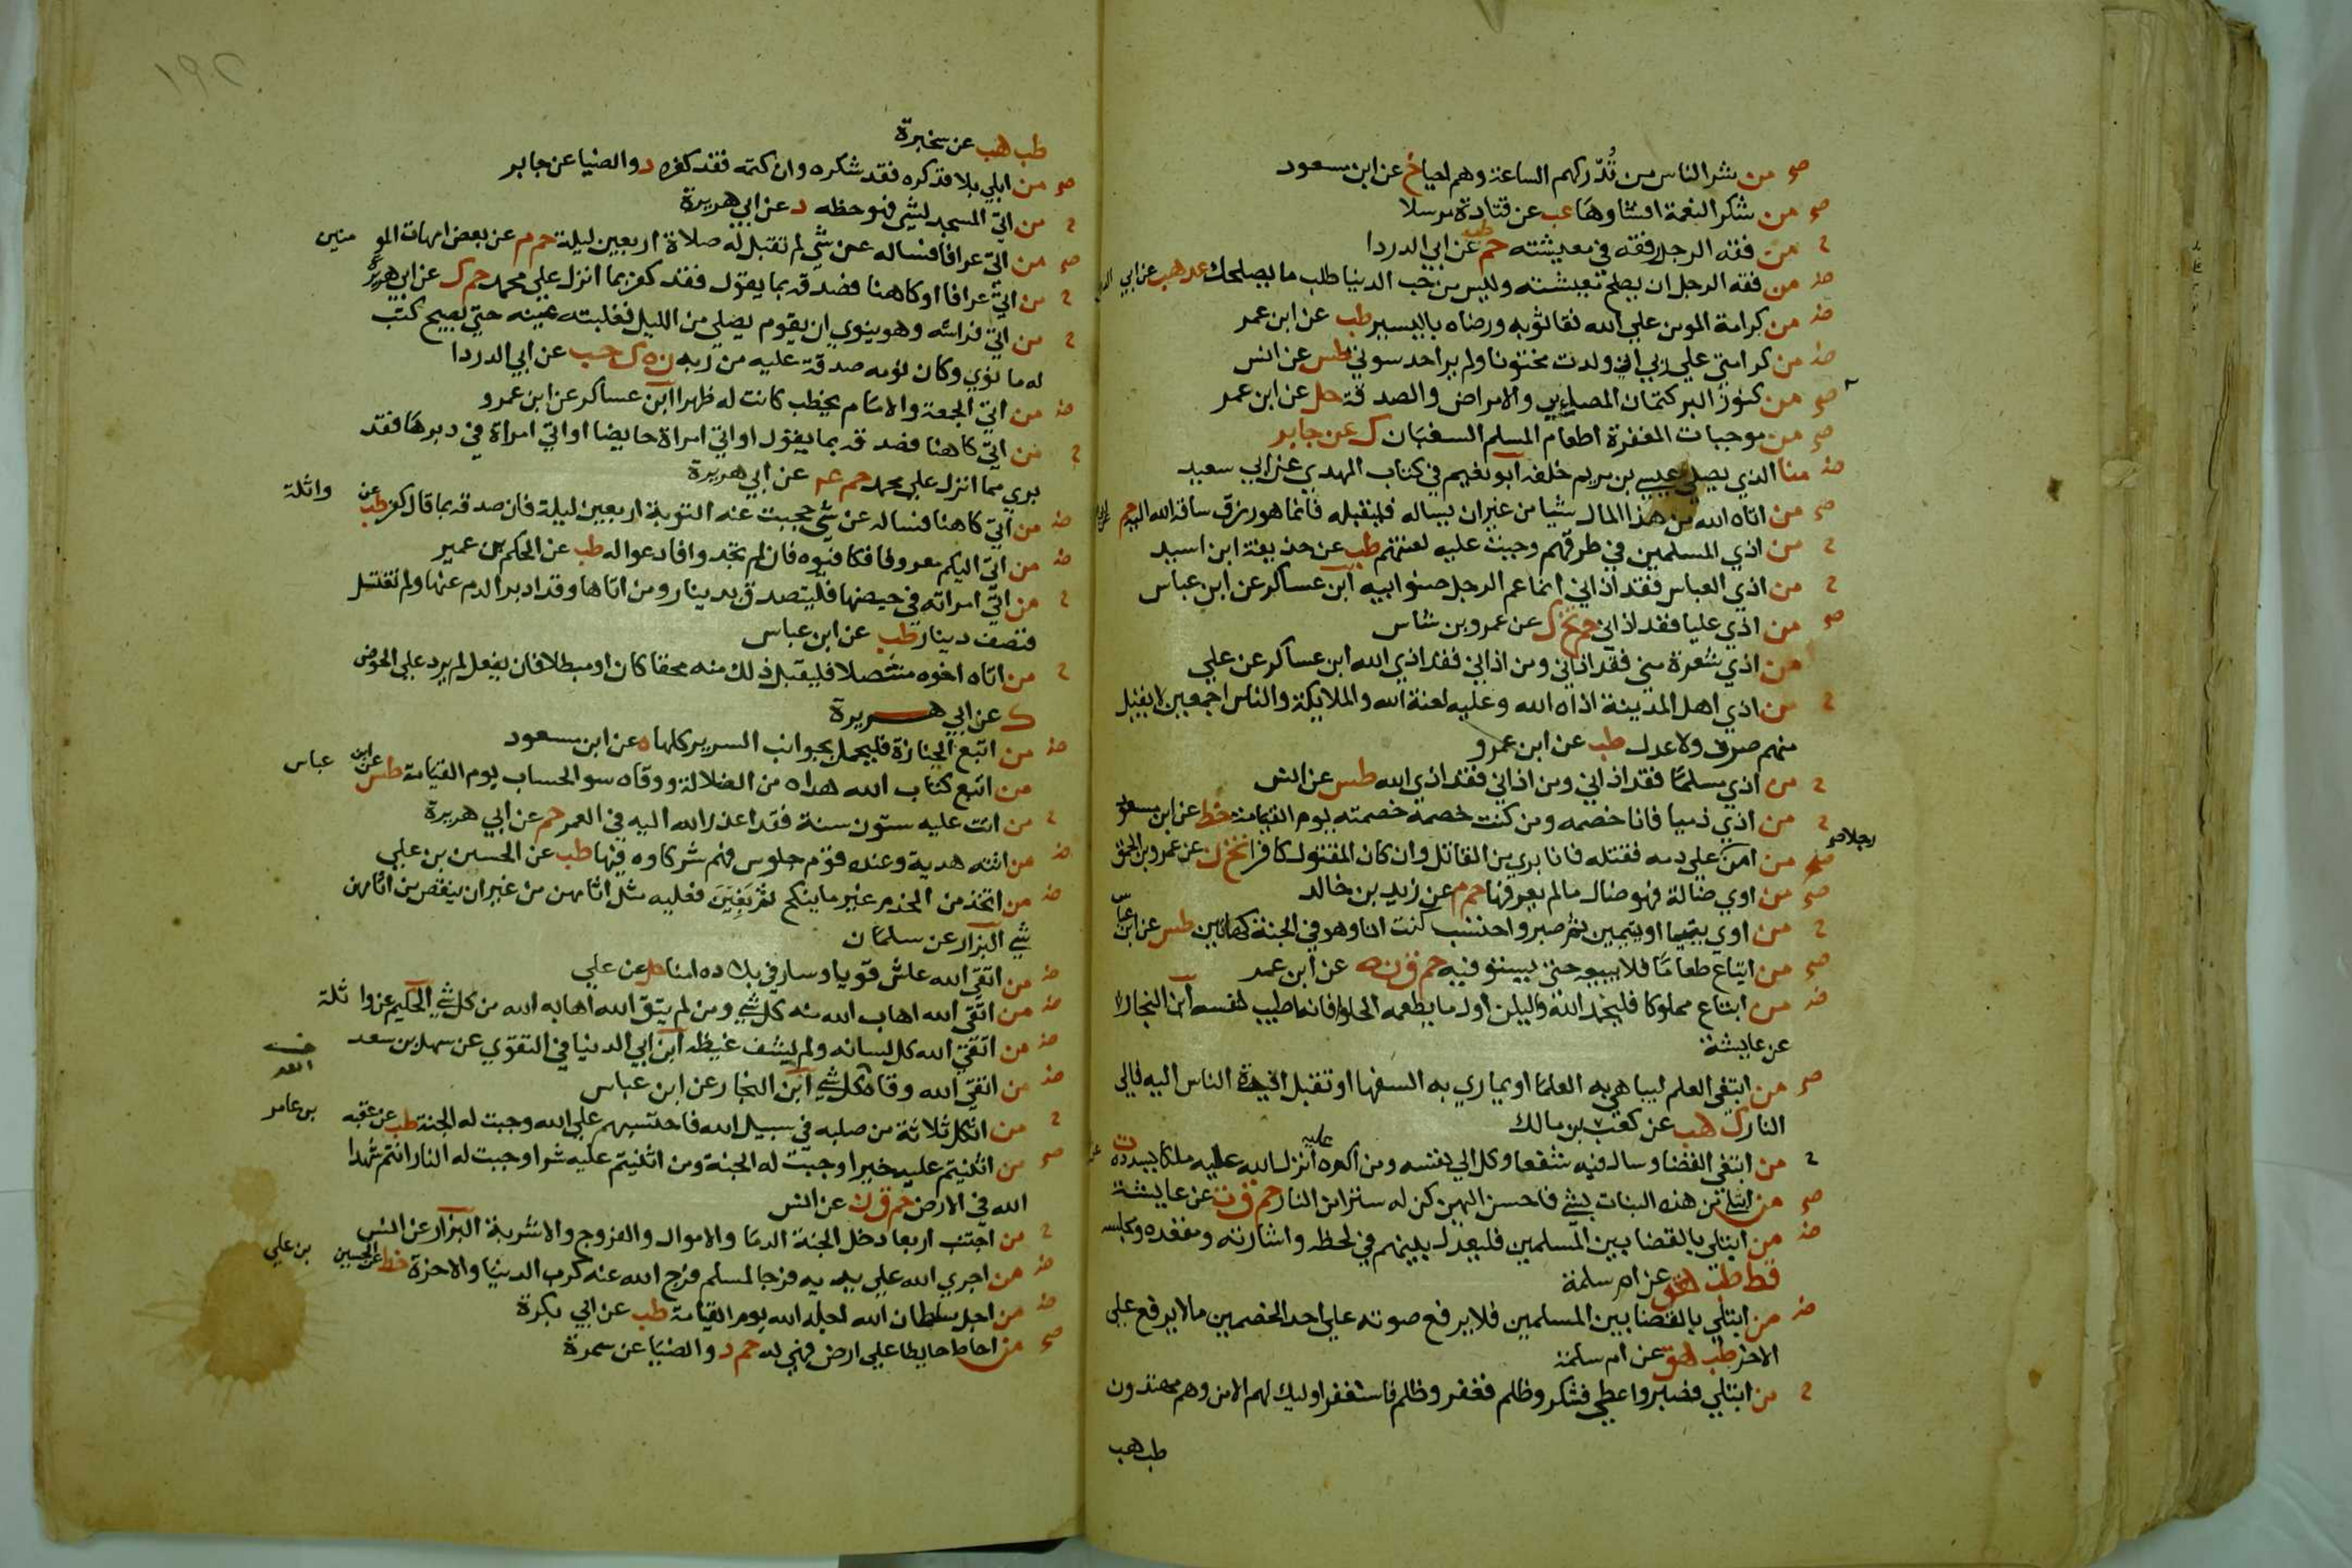 صح من شر الناس من تُدركهم الساعة وهم احيا خ عن ابن مسعود
صح من شكر النعمة افشاوها عب عن قتادة مرسلا
ح من فقه الرجل رفقه في معيشته حم طب عن ابي الدردا
ض من فقه الرجل ان يصلح معيشته وليس من حب الدنيا طلب ما يصلحك عد هب عن ابي الدر
ض من كرامة المومن علي الله نقا ثوبه ورضاه باليسير طب عن ابن عمر
ض من كرامتي علي ربي اني ولدت مختونا ولم ير احد سوتي طس عن انس
صح من كنوز البر كتمان المصايب والامراض والصدقة حل عن ابن عمر
صح من موجبات المغفرة اطعام المسلم السغبان ك عن جابر
ض منا الذي يصلي عيسي بن مريم خلفه ابو نعيم في كتاب المهدي عن ابي سعيد
صح من اتاه الله من هذا المال شيا من غير ان يساله فليقبله فانما هو رزق ساقه الله اليه حم
ح من اذي المسلمين في طرقهم وجبت عليه لعنتهم طب عن حذيفة ابن اسيد
ح من اذي العباس فقد اذاني انما عم الرجل صنو ابيه ابن عساكر عن ابن عباس
صح من اذي عليا فقد اذاني حم تخ ك عن عمرو بن شاس
من اذي شعرة مني فقد اذاني ومن اذاني فقد اذي الله ابن عساكر عن علي
ح من اذي اهل المدينة اذاه الله وعليه لعنة الله والملايكة والناس اجمعين لا يقبل
منهم صرف ولا عدل طب عن ابن عمرو
ح من اذي مسلما فقد اذاني ومن اذاني فقد اذي الله طس عن انس
ح من اذي ذميا فانا خصمه ومن كنت خصمه خصمته يوم القيامة خط عن ابن مسعود
رجلا صح
صح من امن علي دمه فقتله فانا بري من القاتل وان كان المقتول كافرا تخ ن عن عمرو بن الحمق
صح من اوي ضالة فهو ضال ما لم يعرفها حم م عن زيد بن خالد
ح من اوي يتيما او يتيمين ثم صبر واحتسب كنت انا وهو في الجنة كهاتين طس عن ابن عباس
صح من ابتاع طعاما فلا يبيعه حتي يستوفيه حم ق ن ه عن ابن عمر
ض من ابتاع مملوكا فليحمد الله وليكن اول ما يطعمه الحلوا فانه اطيب لنفسه ابن النجار
عن عايشة
صح من ابتغي العلم ليباهي به العلما او يماري به السفها او تقبل افيدة الناس اليه فالي
النار ك هب عن كعب بن مالك
ح من ابتغي القضا وسال فيه شفعا وكل الي نفسه ومن اكره عليه انزل الله عليه ملكا يسدده ت
صح من ابتلي من هذه البنات بشي فاحسن اليهن كن له سترا من النار حم ق ت عن عايشة
ض من ابتلي بالقضا بين المسلمين فليعدل بينهم في لحظه واشارته ومقعده ومجلسه
قط طب هق عن ام سلمة
ض من ابتلي بالقضا بين المسلمين فلا يرفع صوته علي احد الخصمين ما لا يرفع علي
الاخر طب هق عن ام سلمة
ح من ابتلي فصبر واعطي فشكر وظلم فغفر وظلم فاستغفر اوليك لهم الامن وهم مهتدون
طب هب
طب هب عن سخبرة
صح من ابلي بلا فذكره فقد شكره وان كتمه فقد كفره د والضيا عن جابر
ح من اتي المسجد لشي فهو حظه د عن ابي هريرة
صح من اتي عرافا فساله عن شي لم تقبل له صلاة اربعين ليلة حم م عن بعض امهات المومنين
ح من اتي عرافا او كاهنا فصدقه بما يقول فقد كفر بما انزل علي محمد حم ك عن ابي هريرة
ح من اتي فراشه وهو ينوي ان يقوم يصلي من الليل فغلبته عينه حتي يصبح كتب
له ما نوي وكان نومه صدقة عليه من ربه ن ه ك حب عن ابي الدردا
ض من اتي الجمعة والامام يخطب كانت له ظهرا ابن عساكر عن ابن عمرو
ح من اتي كاهنا فصدقه بما يقول او اتي امراة حايضا او اتي امراة في دبرها فقد
بري مما انزل علي محمد حم عه عن ابي هريرة
ض من اتي كاهنا فساله عن شي حجبت عنه التوبة اربعين ليلة فان صدقه بما قال كفر طب عن واثلة
ض من اتي اليكم معروفا فكافيوه فان لم تجدوا فادعوا له طب عن الحكم بن عمير
ح من اتي امراته في حيضها فليتصدق بدينار ومن اتاها وقد ادبر الدم عنها ولم تغتسل
فنصف دينار طب عن ابن عباس
ح من اتاه اخوه متنصلا فليقبل ذلك منه محقا كان او مبطلا فان لم يفعل لم يرد علي الحوض
ك عن ابي هريرة
ض من اتبع الجنازة فليحمل بجوانب السرير كلها ه عن ابن مسعود
من اتبع كتاب الله هداه من الضلالة ووقاه سو الحساب يوم القيامة طس عن ابن عباس
ح من اتت عليه ستون سنة فقد اعذر الله اليه في العمر حم عن ابي هريرة
ض من اتته هدية وعنده قوم جلوس فهم شركاوه فيها طب عن الحسين بن علي
ض من اتخذ من الخدم غير ما ينكح ثم بَغَينَ فعليه مثل اثامهن من غير ان ينقص من اثامهن
شي البزار عن سلمان
ض من اتقي الله عاش قويا وسار في بلاده امنا حل عن علي
ض من اتقي الله اهاب الله منه كل شي ومن لم يتق الله اهابه الله من كل شي الحكيم عن واثلة
ض من اتقي الله كل لسانه ولم يشف غيظه ابن ابي الدنيا في التقوي عن سهل بن سعد
ض من اتقي الله وقاه كل شي ابن النجار عن ابن عباس
ح من اثكل ثلاثة من صلبه في سبيل الله فاحتسبهم علي الله وجبت له الجنة طب عن عقبه بن عامر
صح من اثنيتم عليه خيرا وجبت له الجنة ومن اثنيتم عليه شرا وجبت له النار انتم شهدا
الله في الارض حم ق ن عن انس
ح من اجتنب اربعا دخل الجنة الدما والاموال والفروج والاشربة البزار عن انس
ض من اجري الله علي يديه فرجا لمسلم فرج الله عنه كرب الدنيا والاخرة خط عن الحسين بن علي
ض من اجل سلطان الله اجله الله يوم القيامة طب عن ابي بكرة
صح من احاط حايطا علي ارض فهي له حم د والضيا عن سمرة